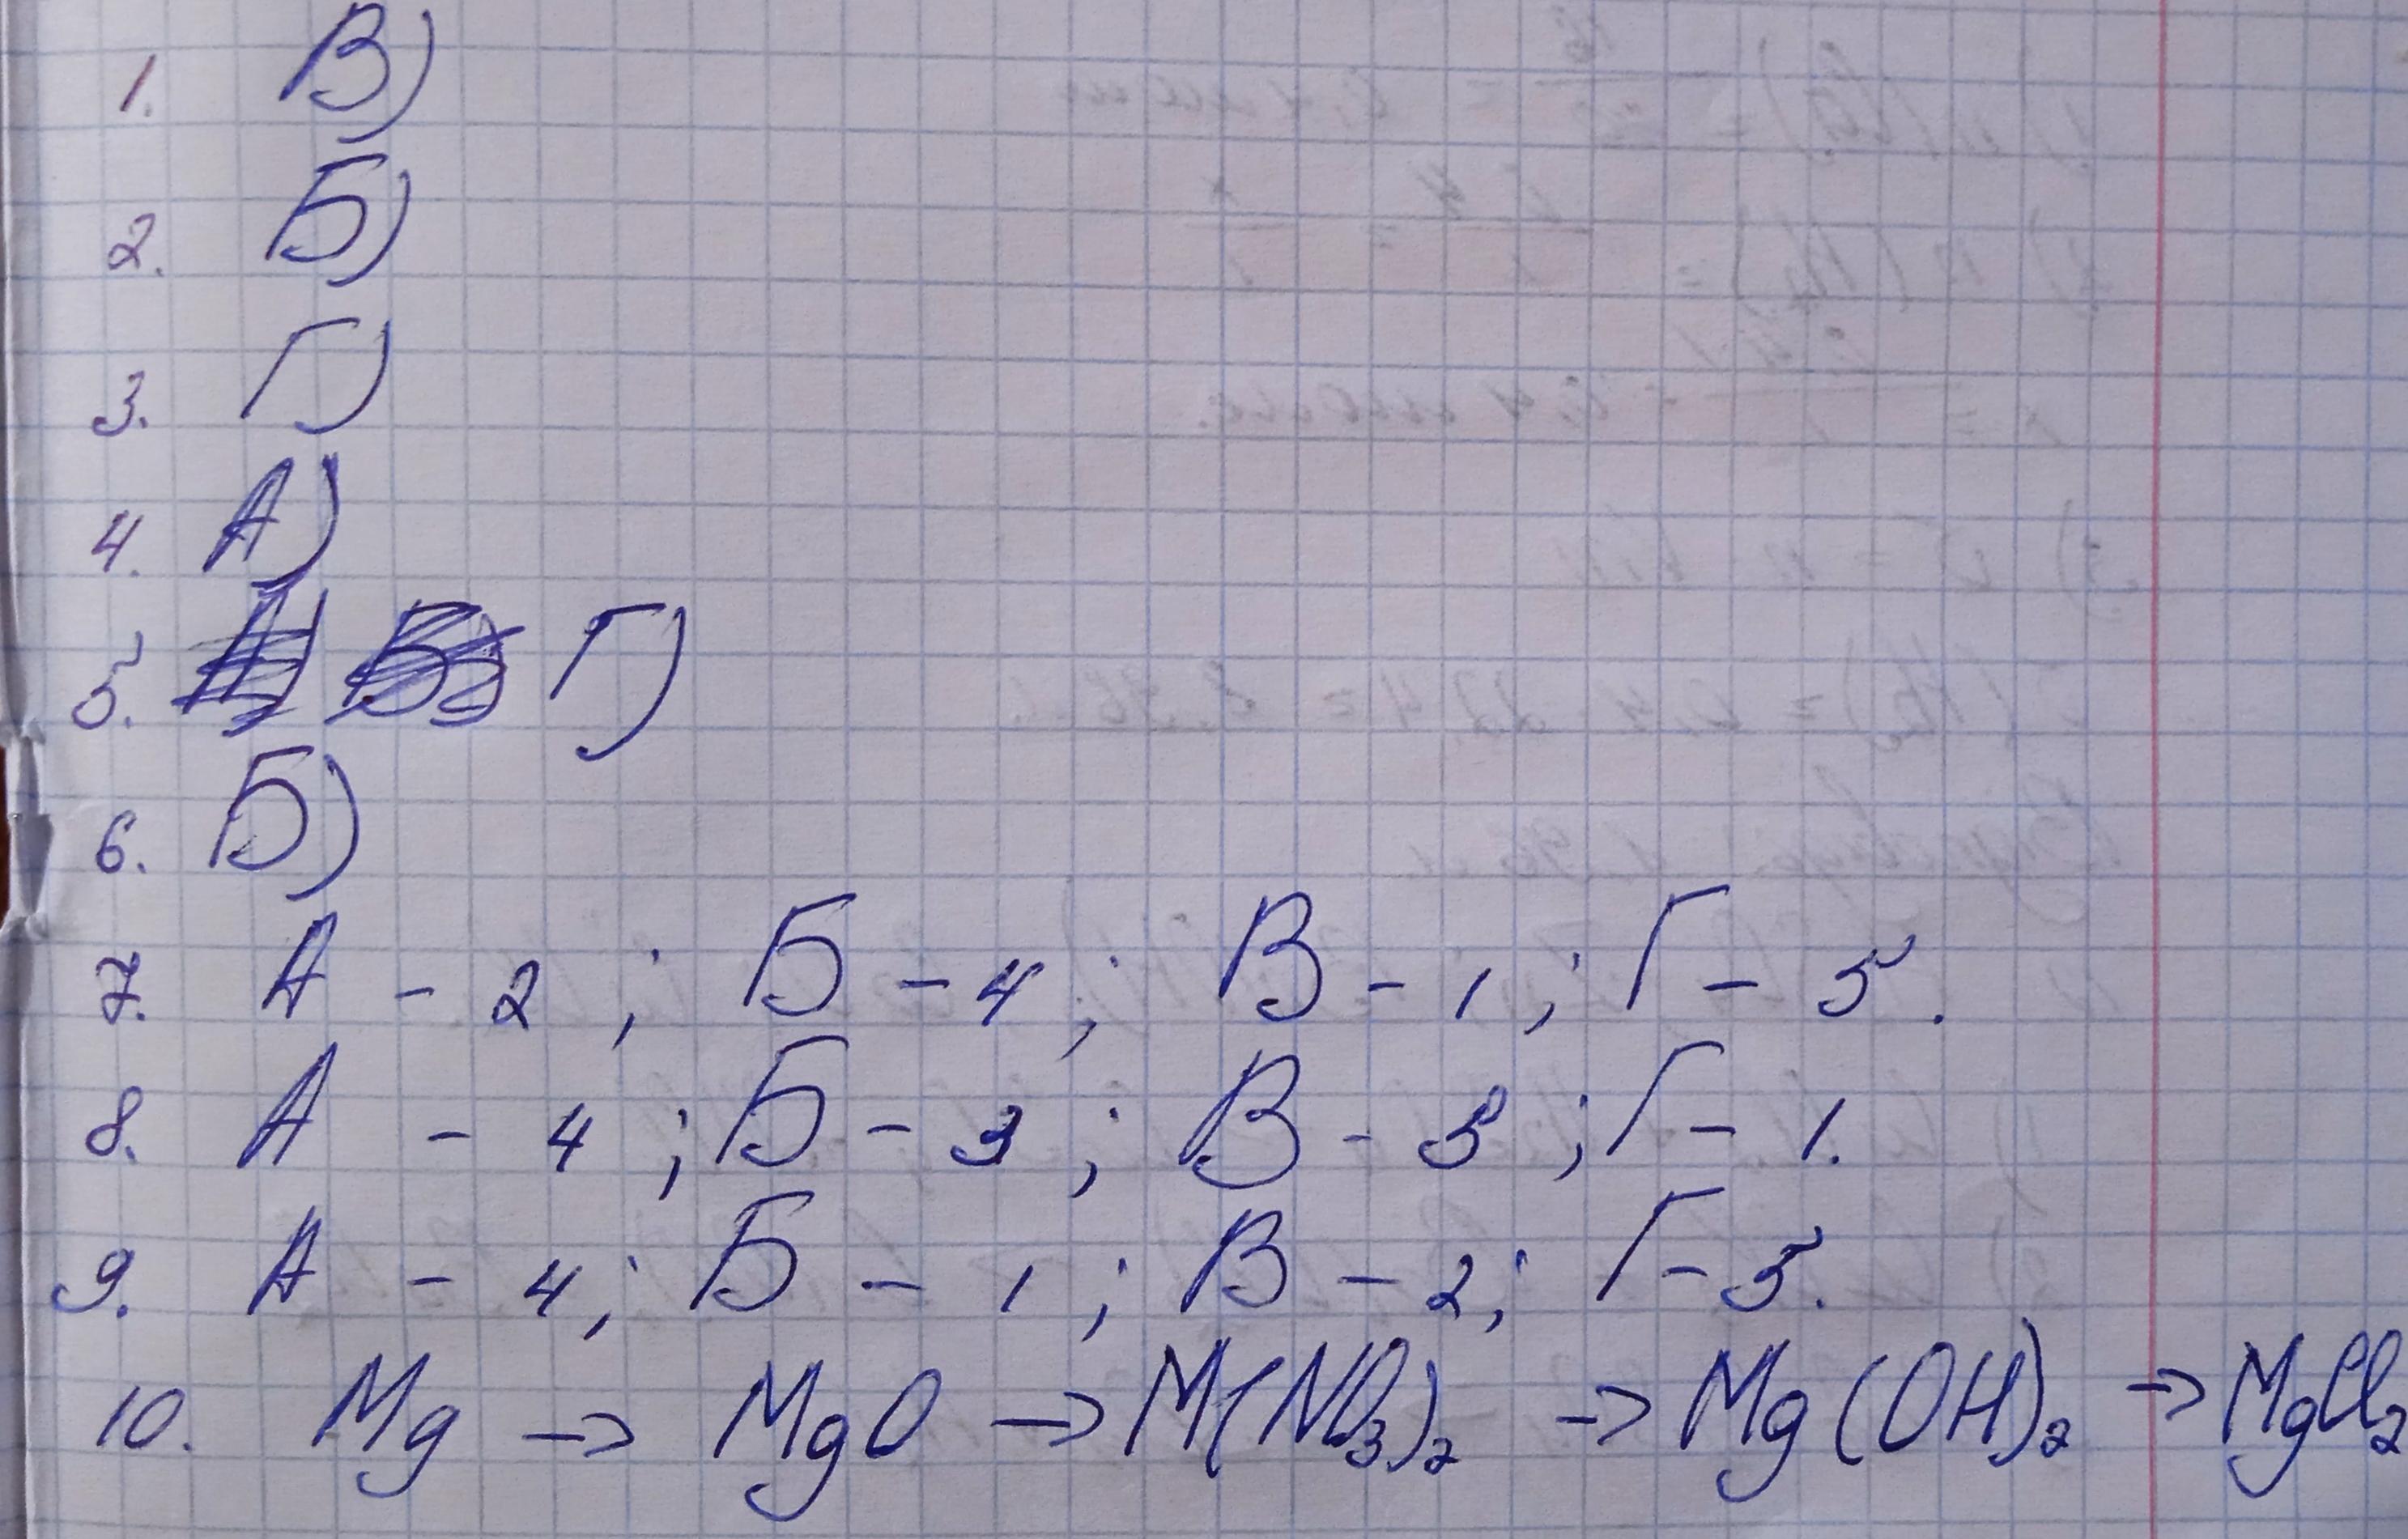 1. В)
2. Б)
3. Г)
4. А)
5. Г)
6. Б)
7. А - 2 ; Б - 4 ; В - 1 ; Г - 5.
8. А - 4 ; Б - 3 ; В - 5 ; Г - 1.
9. А - 4 ; Б - 1 ; В - 2 ; Г - 5.
10. Mg → MgO → M(NO₃)₂ → Mg(OH)₂ → MgCl₂